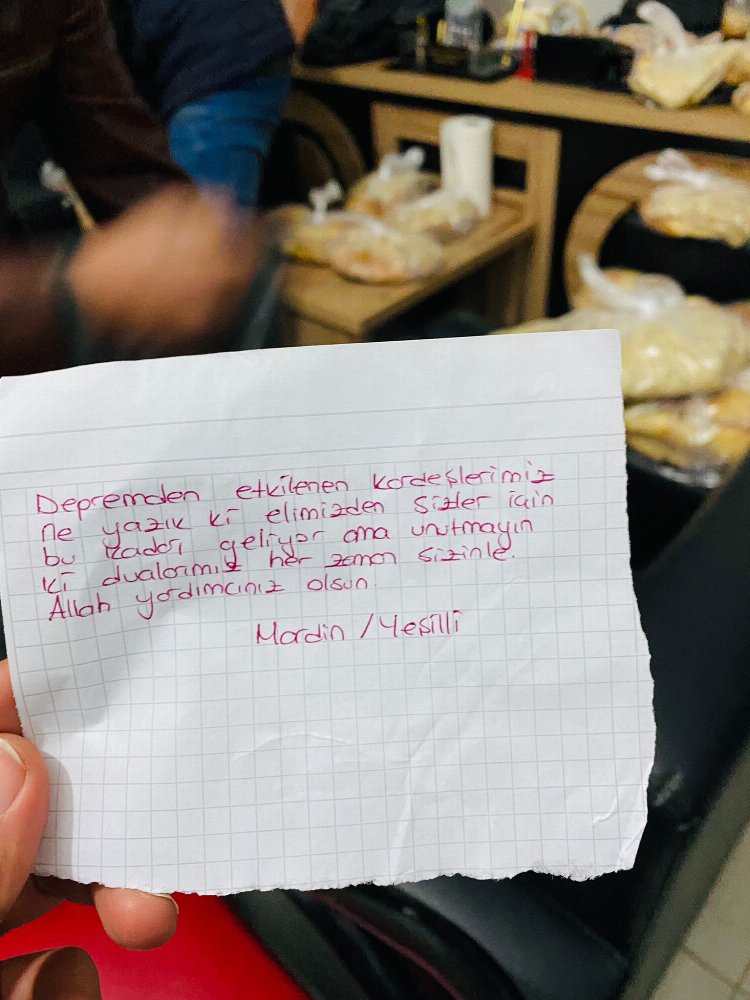 Depremden etkilenen kardeşlerimiz
ne yazık ki elimizden sizler için
bu kadarı geliyor ama unutmayın
ki dualarımız her zaman sizinle.
Allah yardımcınız olsun.
Mardin / Yeşilli